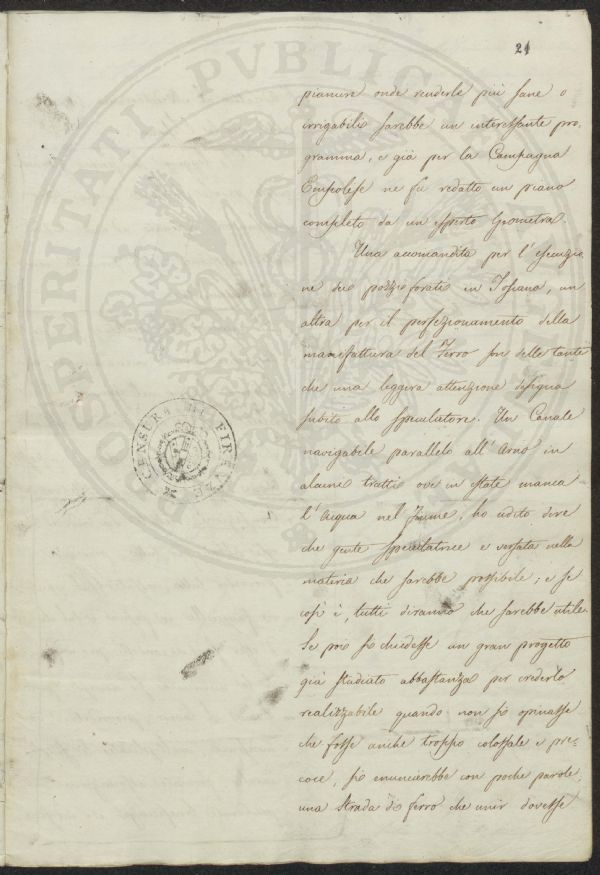 21
pianure onde renderle più sane o
irrigabili sarebbe un interessante pro-
gramma, e già per la Campagna
Empolese ne fu redatto un piano
completo da un esperto Geometra.
Una accomandita per l'esecuzio
ne dei pozzi forati in Toscana, un
altra per il perfezionamento della
manifattura del Ferro son delle tante
che una leggera attenzione
subito allo speculatore. Un Canale
navigabile parallelo all'Arno in
alcuni tratti ove in state manca
l'Acqua nel Fiume, ho udito dire
che gente speculatrice e versata nella
materia che sarebbe possibile; e se
così è, tutti diranno che sarebbe utile.
Se poi si chiedesse un gran progetto
già studiato abbastanza per crederlo
realizzabile quando non si opinasse
che fosse anche troppo colossale e pre-
coce, si enuncierebbe con poche parole,
una Strada di ferro che unir dovesse
PROSPERITATI PVBLICAE
CENSURA DI FIRENZE